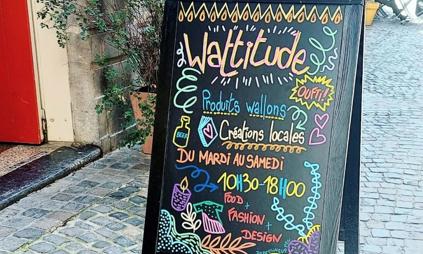 Wattitude
OUFTI!
Produits wallons
Créations locales
DU MARDI AU SAMEDI
10H30-18H00
FOOD +
FASHION +
DESIGN